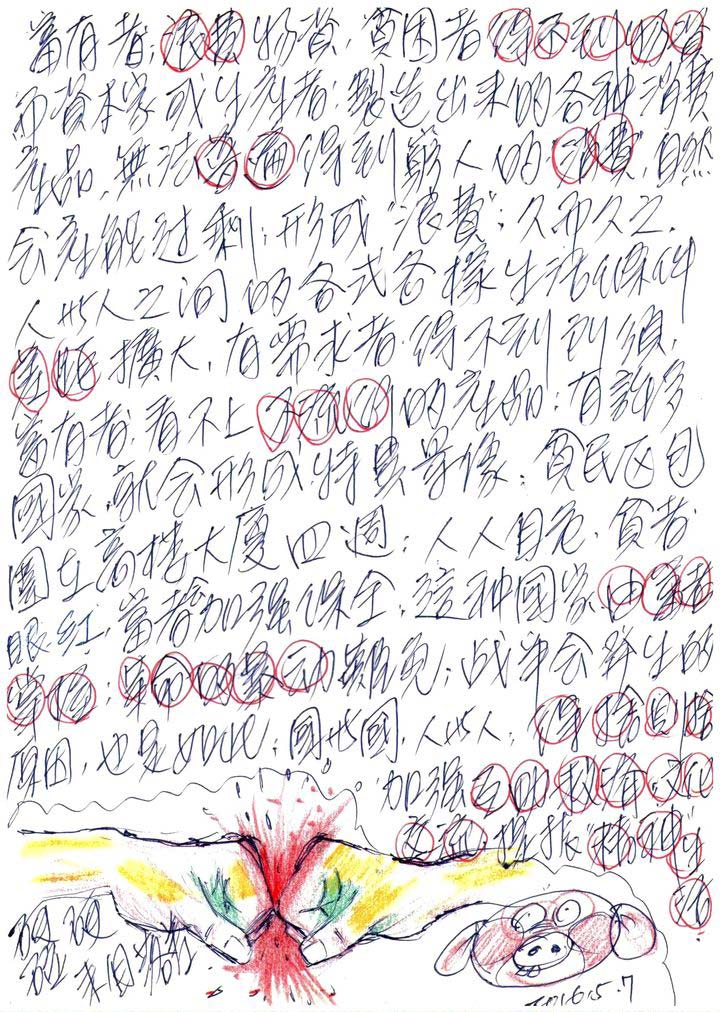 富有者；浪費物資，貧困者得不到物資
而資本家或生產者，製造出來的各种消費
產品，無法普遍得到窮人的"消費"，自然
会產能过剩；形成"浪費"；久而久之，
人與人之间的各式各樣生活條件
差距擴大，有需求者，得不到
富有者，看不上的產品；有許多
國家，就会形成特異景像；貧民区包
圍在高楼大廈四週；人人自危，貧者
眼红，富者加强保全；這种國家
革命的暴动難免；战争会發生的
原因，也是如此；國與國，人與人；
加强互助救濟，文化
交流，提振"精神"生
活
硬碰硬
2016.5.7